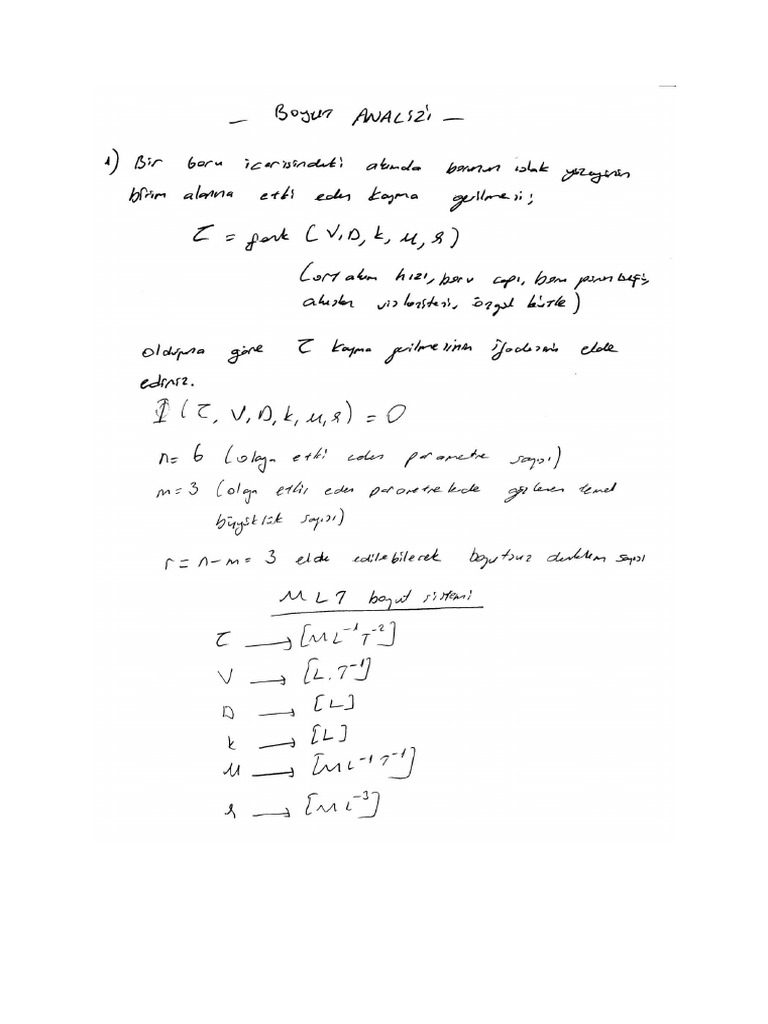 - BOYUT ANALİZİ -
1) Bir boru içerisindeki akımda borunun ıslak yüzeyinin
birim alanına etki eden kayma gerilmesi;
τ = fonk (V, D, k, μ, ρ)
(ort akım hızı, boru çapı, boru
akışkan viskozitesi, özgül kütle)
Olduğuna göre τ kayma gerilmesinin ifadesini elde
ediniz.
Φ (τ, V, D, k, μ, ρ) = 0
n = 6 (olaya etki eden parametre sayısı)
m = 3 (olaya etki eden parametrelerde temel
büyüklük sayısı)
r = n - m = 3 elde edilebilecek boyutsuz denklem sayısı
MLT boyut sistemi
τ → [ML⁻¹T⁻²]
V → [L.T⁻¹]
D → [L]
k → [L]
μ → [ML⁻¹T⁻¹]
ρ → [ML⁻³]